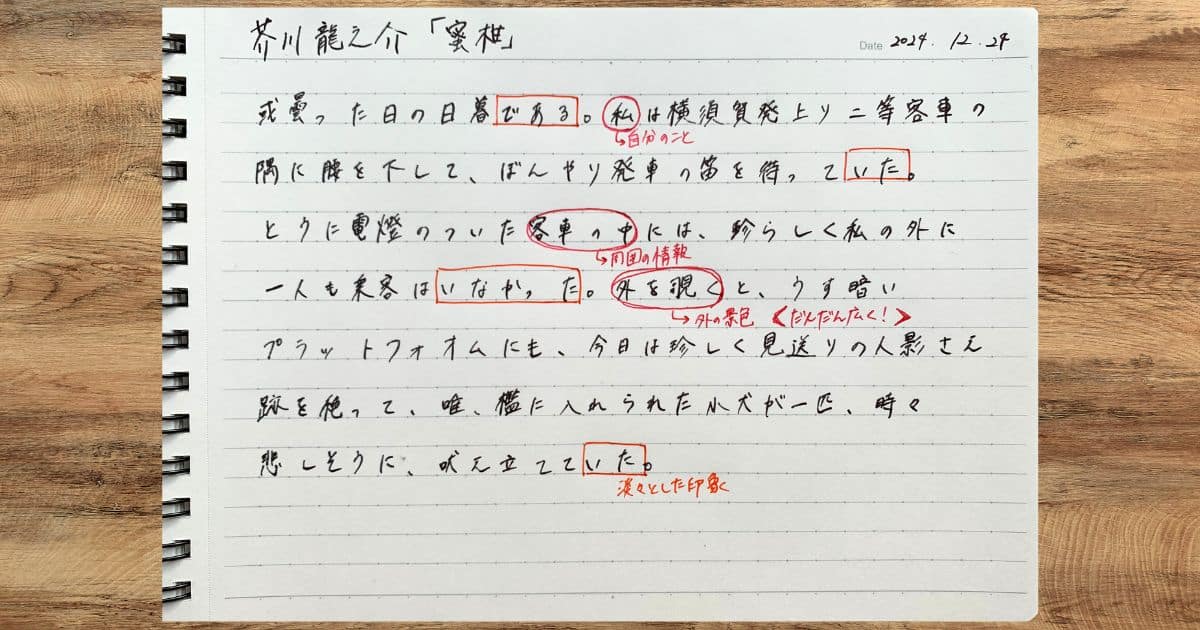 芥川龍之介「蜜柑」
Date 2024.12.24
或曇った日の日暮である。私は横須賀発上り二等客車の
↳自分のこと
隅に腰を下して、ぼんやり発車の笛を待っていた。
とうに電燈のついた客車の中には、珍らしく私の外に
↳周囲の情報
一人も乗客はいなかった。外を覗くと、うす暗い
↳外の景色 《だんだん広く!》
プラットフォオムにも、今日は珍しく見送りの人影さえ
跡を絶って、唯、檻に入れられた小犬が一匹、時々
悲しそうに、吠え立てていた。
淡々とした印象